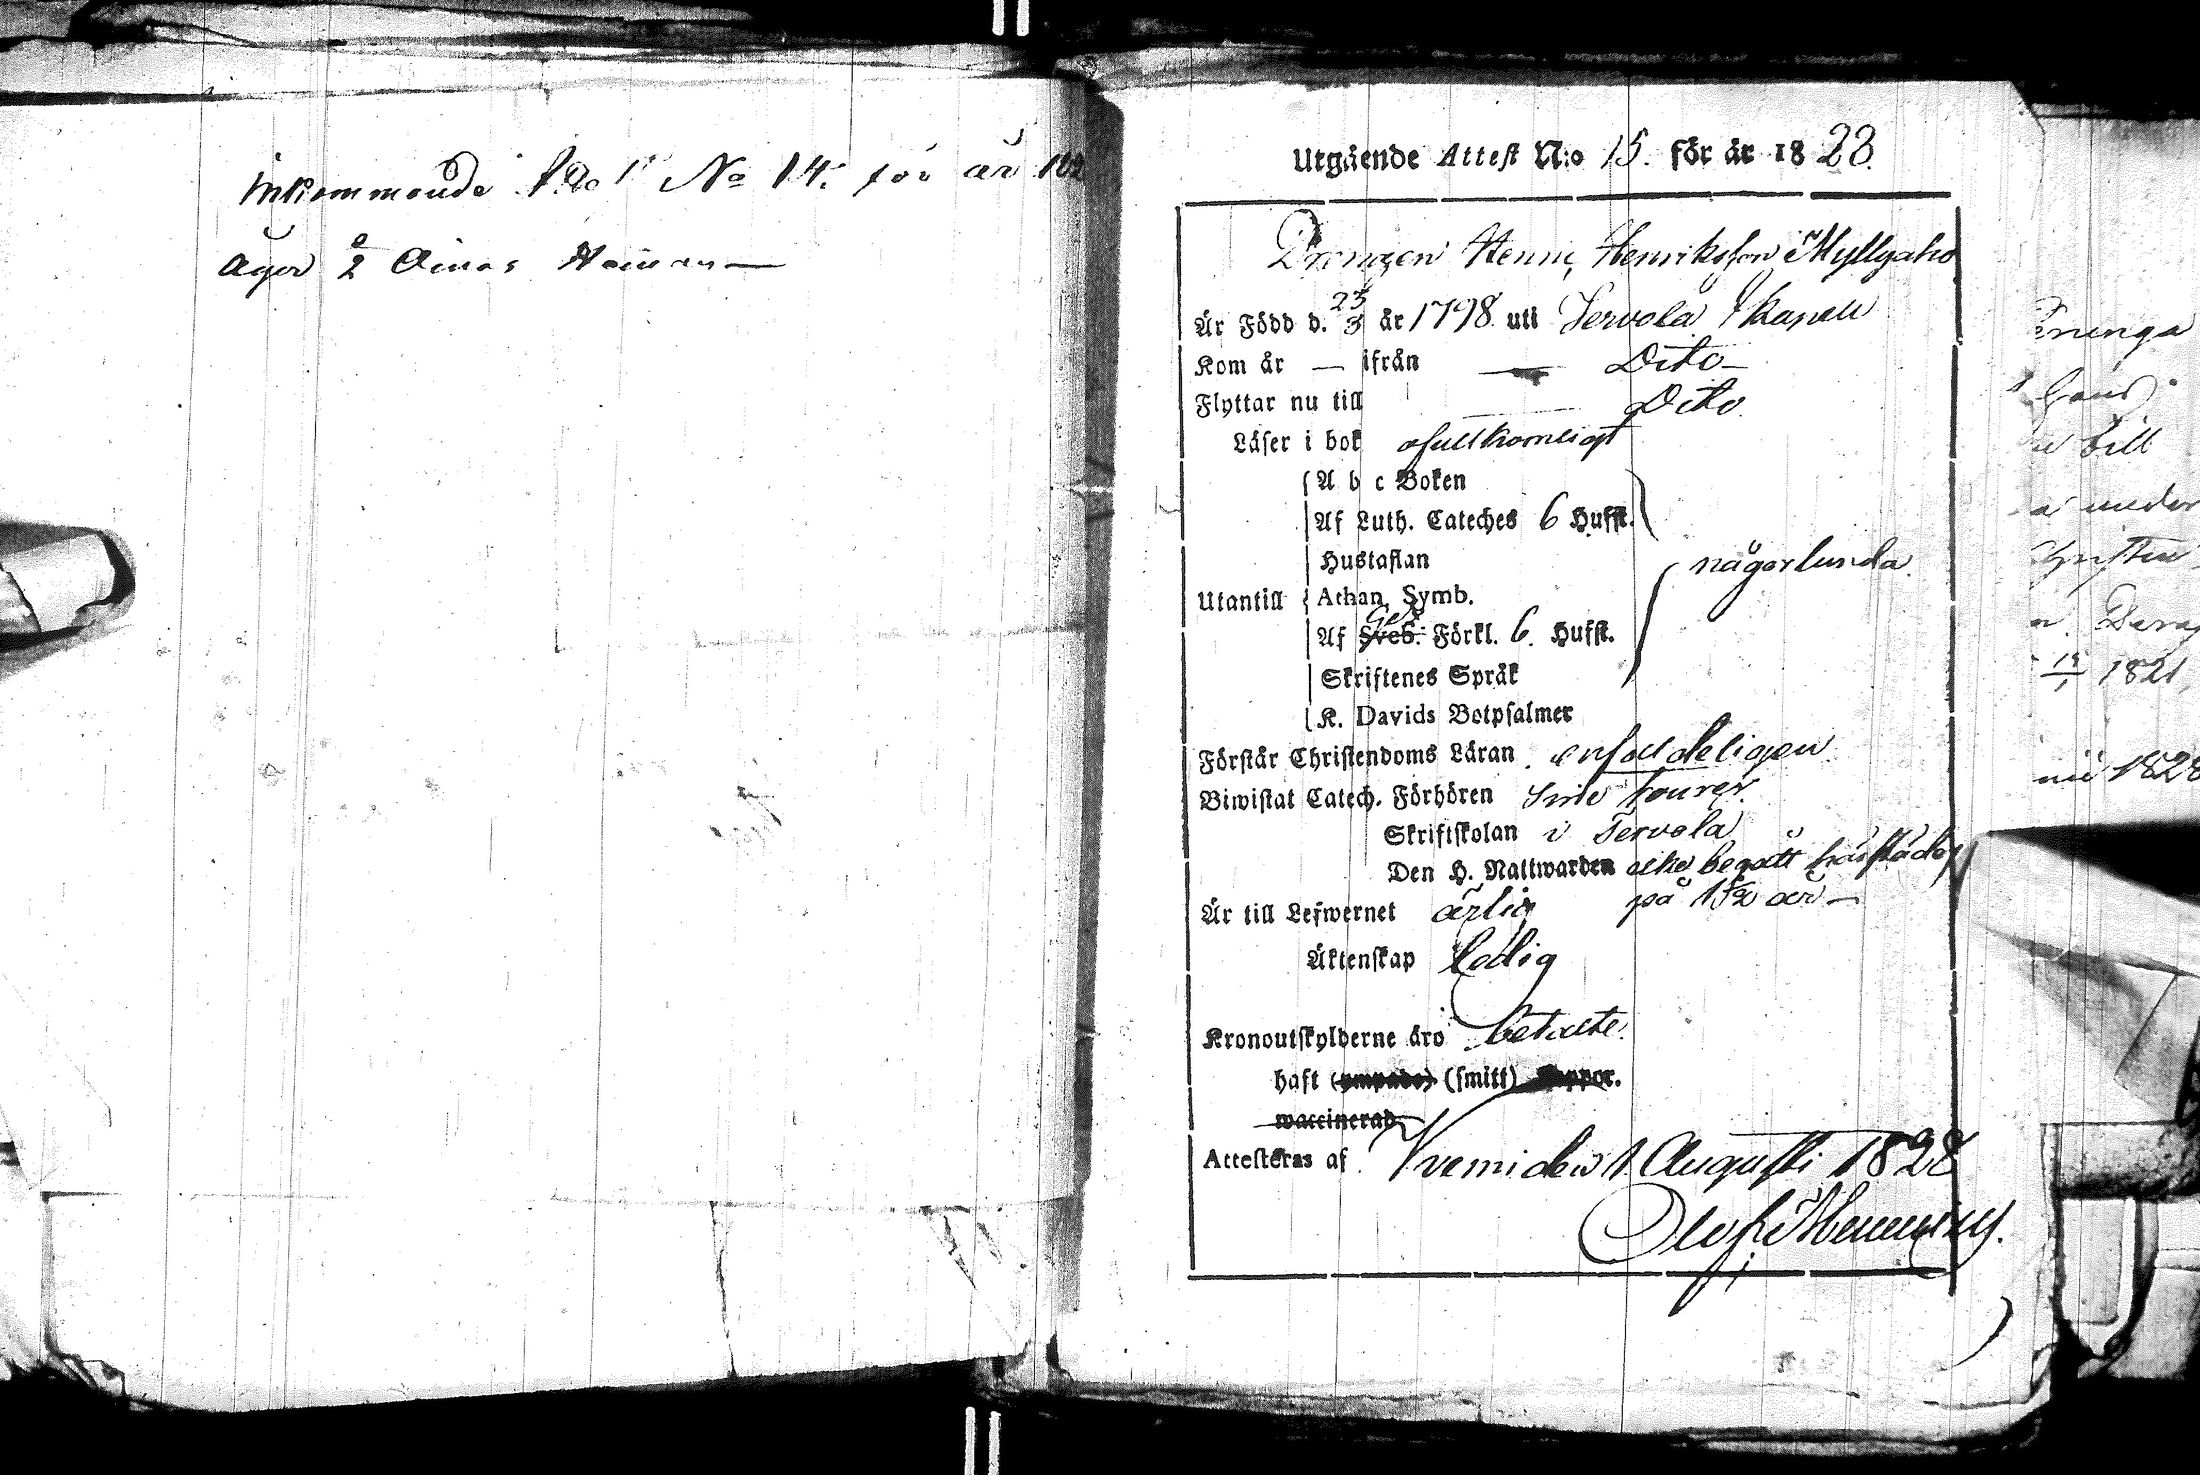 Inkommande No 14. för år 182
Äger Hemman
Utgående Attest N:o 15. för år 1828.
Drengen Henric Henriksson Myllyaho
Är Född d. 23/3 år 1798 uti Tervola Kapell
Kom år — ifrån — Dito —
Flyttar nu till Dito
Läser i bok ofullkomligt
A b c Boken
Af Luth. Cateches 6 Hufst.
Hustaflan
någorlunda
Utantill
Athan. Symb.
Af Sveb. Förkl. 6. Hufst.
Skriftenes Språk
K. Davids Botpsalmer
Förstår Christendoms Läran enfaldeligen
Biwistat Catech. Förhören sine tourer.
Skriftskolan i Tervola
Den H. Nattwarden begått härstädes
på 1 1/2 år —
Är till Lefwernet ärlig
Äktenskap Ledig
Kronoutskylderne äro betalte.
haft (ympade) (smitt) Koppor.
waccinerad
Attesteras af Kemi den 1. Augusti 1828
Olof
ninga
till
under
1821
1828